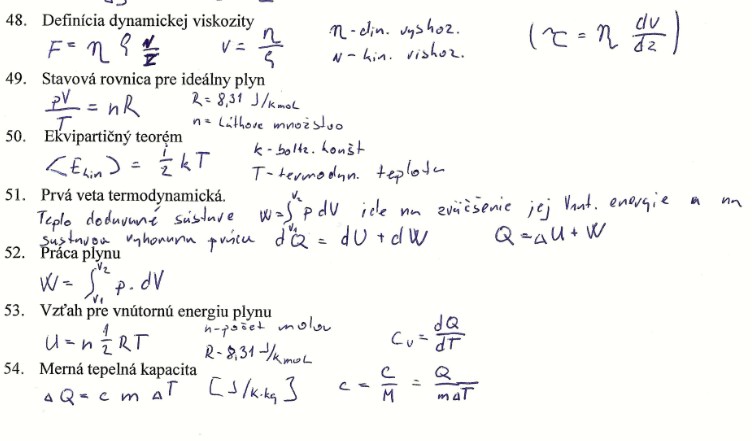 48. Definícia dynamickej viskozity
F = η ς v/z   ν = η/ς   η - din. vyskoz.   ν - kin. viskoz.   (τ = η dv/dz)
49. Stavová rovnica pre ideálny plyn
pV/T = nR   R = 8,31 J/kmol   n = látkove množstvo
50. Ekvipartičný teorém
⟨Ekin⟩ = i/2 kT   k - boltz. konšt   T - termodyn. teplota
51. Prvá veta termodynamická.
Teplo dodávané sústave W = ∫V1V2 p dV ide na zväčšenie jej vnut. energie a na
sústavou vykonanu prácu dQ = dU + dW   Q = ΔU + W
52. Práca plynu
W = ∫V1V2 p . dV
53. Vzťah pre vnútornú energiu plynu
U = n i/2 RT   n - počet molov   R - 8,31 J/kmol   Cv = dQ/dT
54. Merná tepelná kapacita
ΔQ = c m ΔT   [J/K.kg]   c = C/M = Q/mΔT